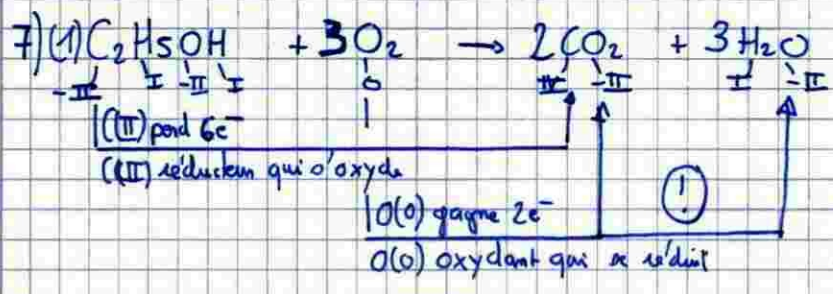 7)(1) C₂H₅OH + 3O₂ → 2CO₂ + 3H₂O
-II I -II I 0 IV -II I -II
C(II) perd 6e⁻
C(II) réducteur qui s'oxyde
!
O(0) gagne 2e⁻
O(0) oxydant qui se réduit